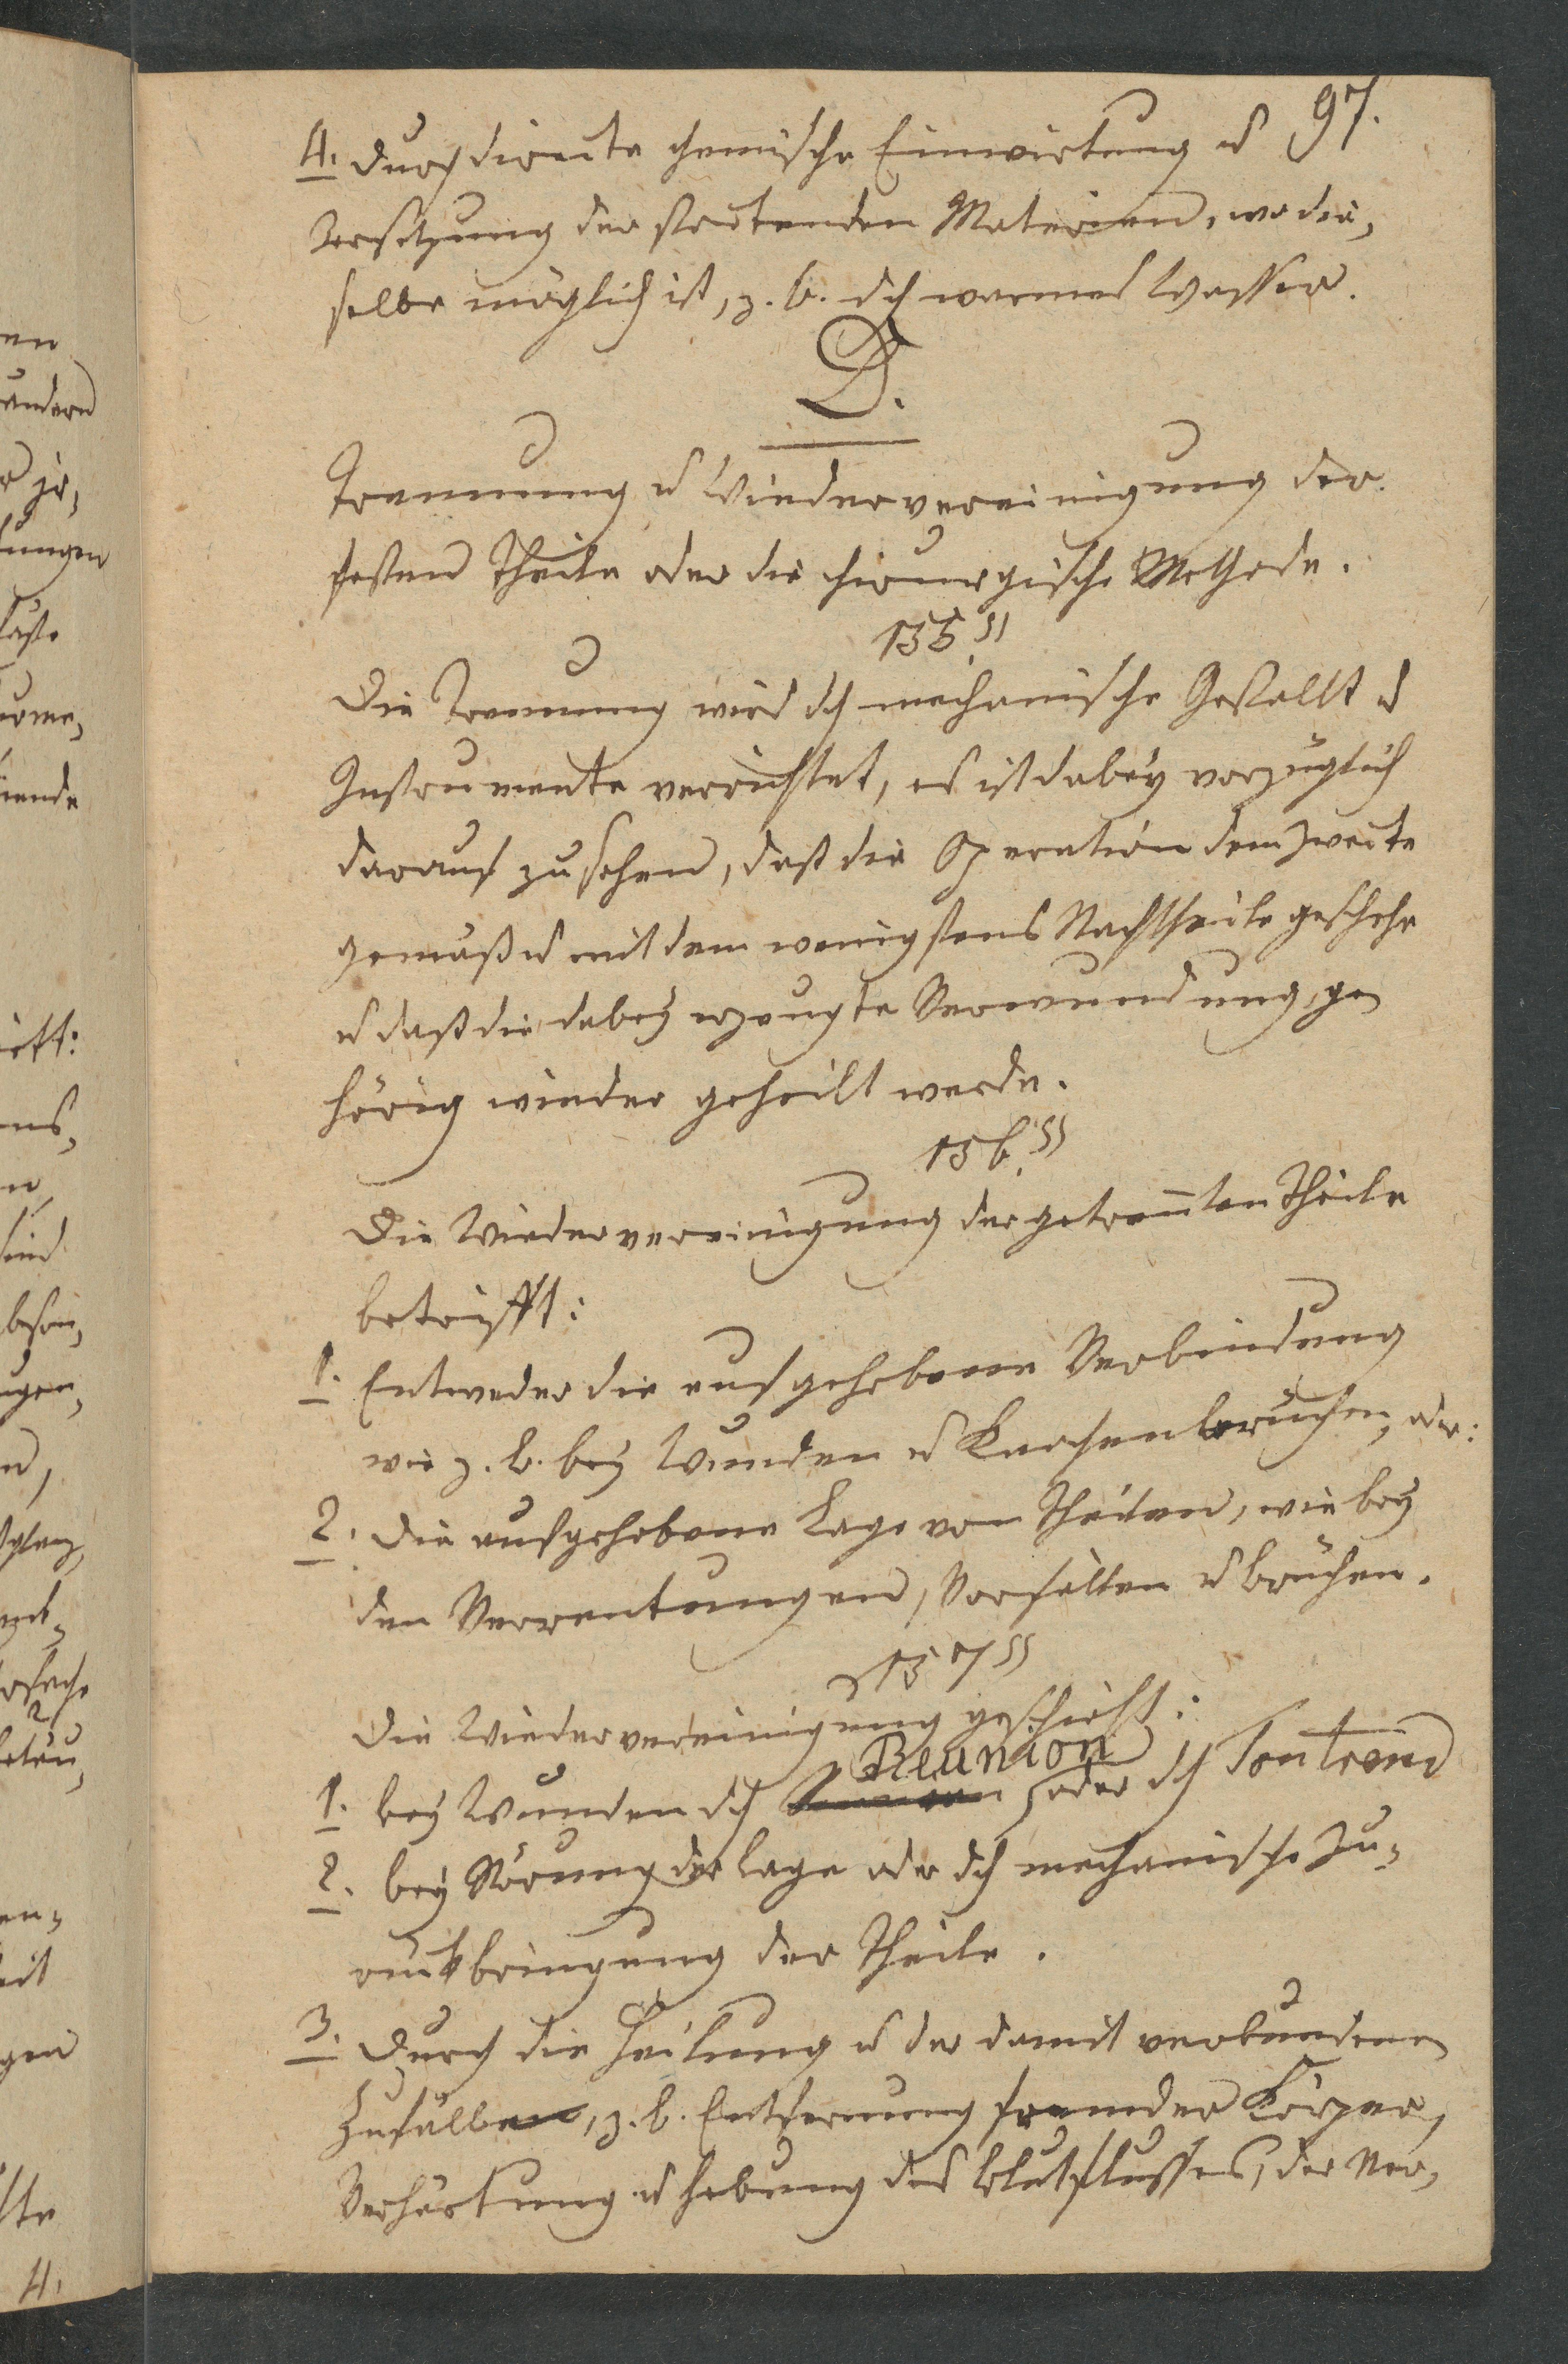 97.
4. durch directe chemische Einwirkung u
Zersetzung der stockenden Materien, wo die,
selbe möglich ist, z. b. dch warmes Wasser.
D.
Trennung u Wiedervereinigung der
festen Theile oder die chirurgische Methode.
135 §
Die Trennung wird dch mechanische Gestallt u
Instrumente verrichtet, es ist dabey vorzüglich
darauf zu sehen, daß die Operation dem Zwecke
gemäß u mit dem wenigstens Nachtheile geschehe
u daß die dabey erzeugte Verwundung, ge,
hörig wieder geheilt werde.
136 §§
Die Wiedervereinigung der getreñten Theile
betrifft:
1. Entweder die aufgehobene Verbindung
wie z. b. bey Wunden u Knochenbrüchen, oder:
2. die aufgehobene Lage von Theilen, wie bey
den Verrenkungen, Vorfällen u brüchen.
137 §§
Die Wiedervereinigung geschieht:
Reunion
1. bey Wunden dch oder dch
2. bey Störung der Lage oder dch mechanische Zu,
rückbringung der Theile.
3. Durch die Heilung u der damit verbundenen
Zufälle, z. b. Entfernung fremder Körper,
Verhärtung u hebung des Blutflusses, der Ver,
en
andern
ungen
ende
iff:
n
sind
ugen,
en,
eit
gen
4.